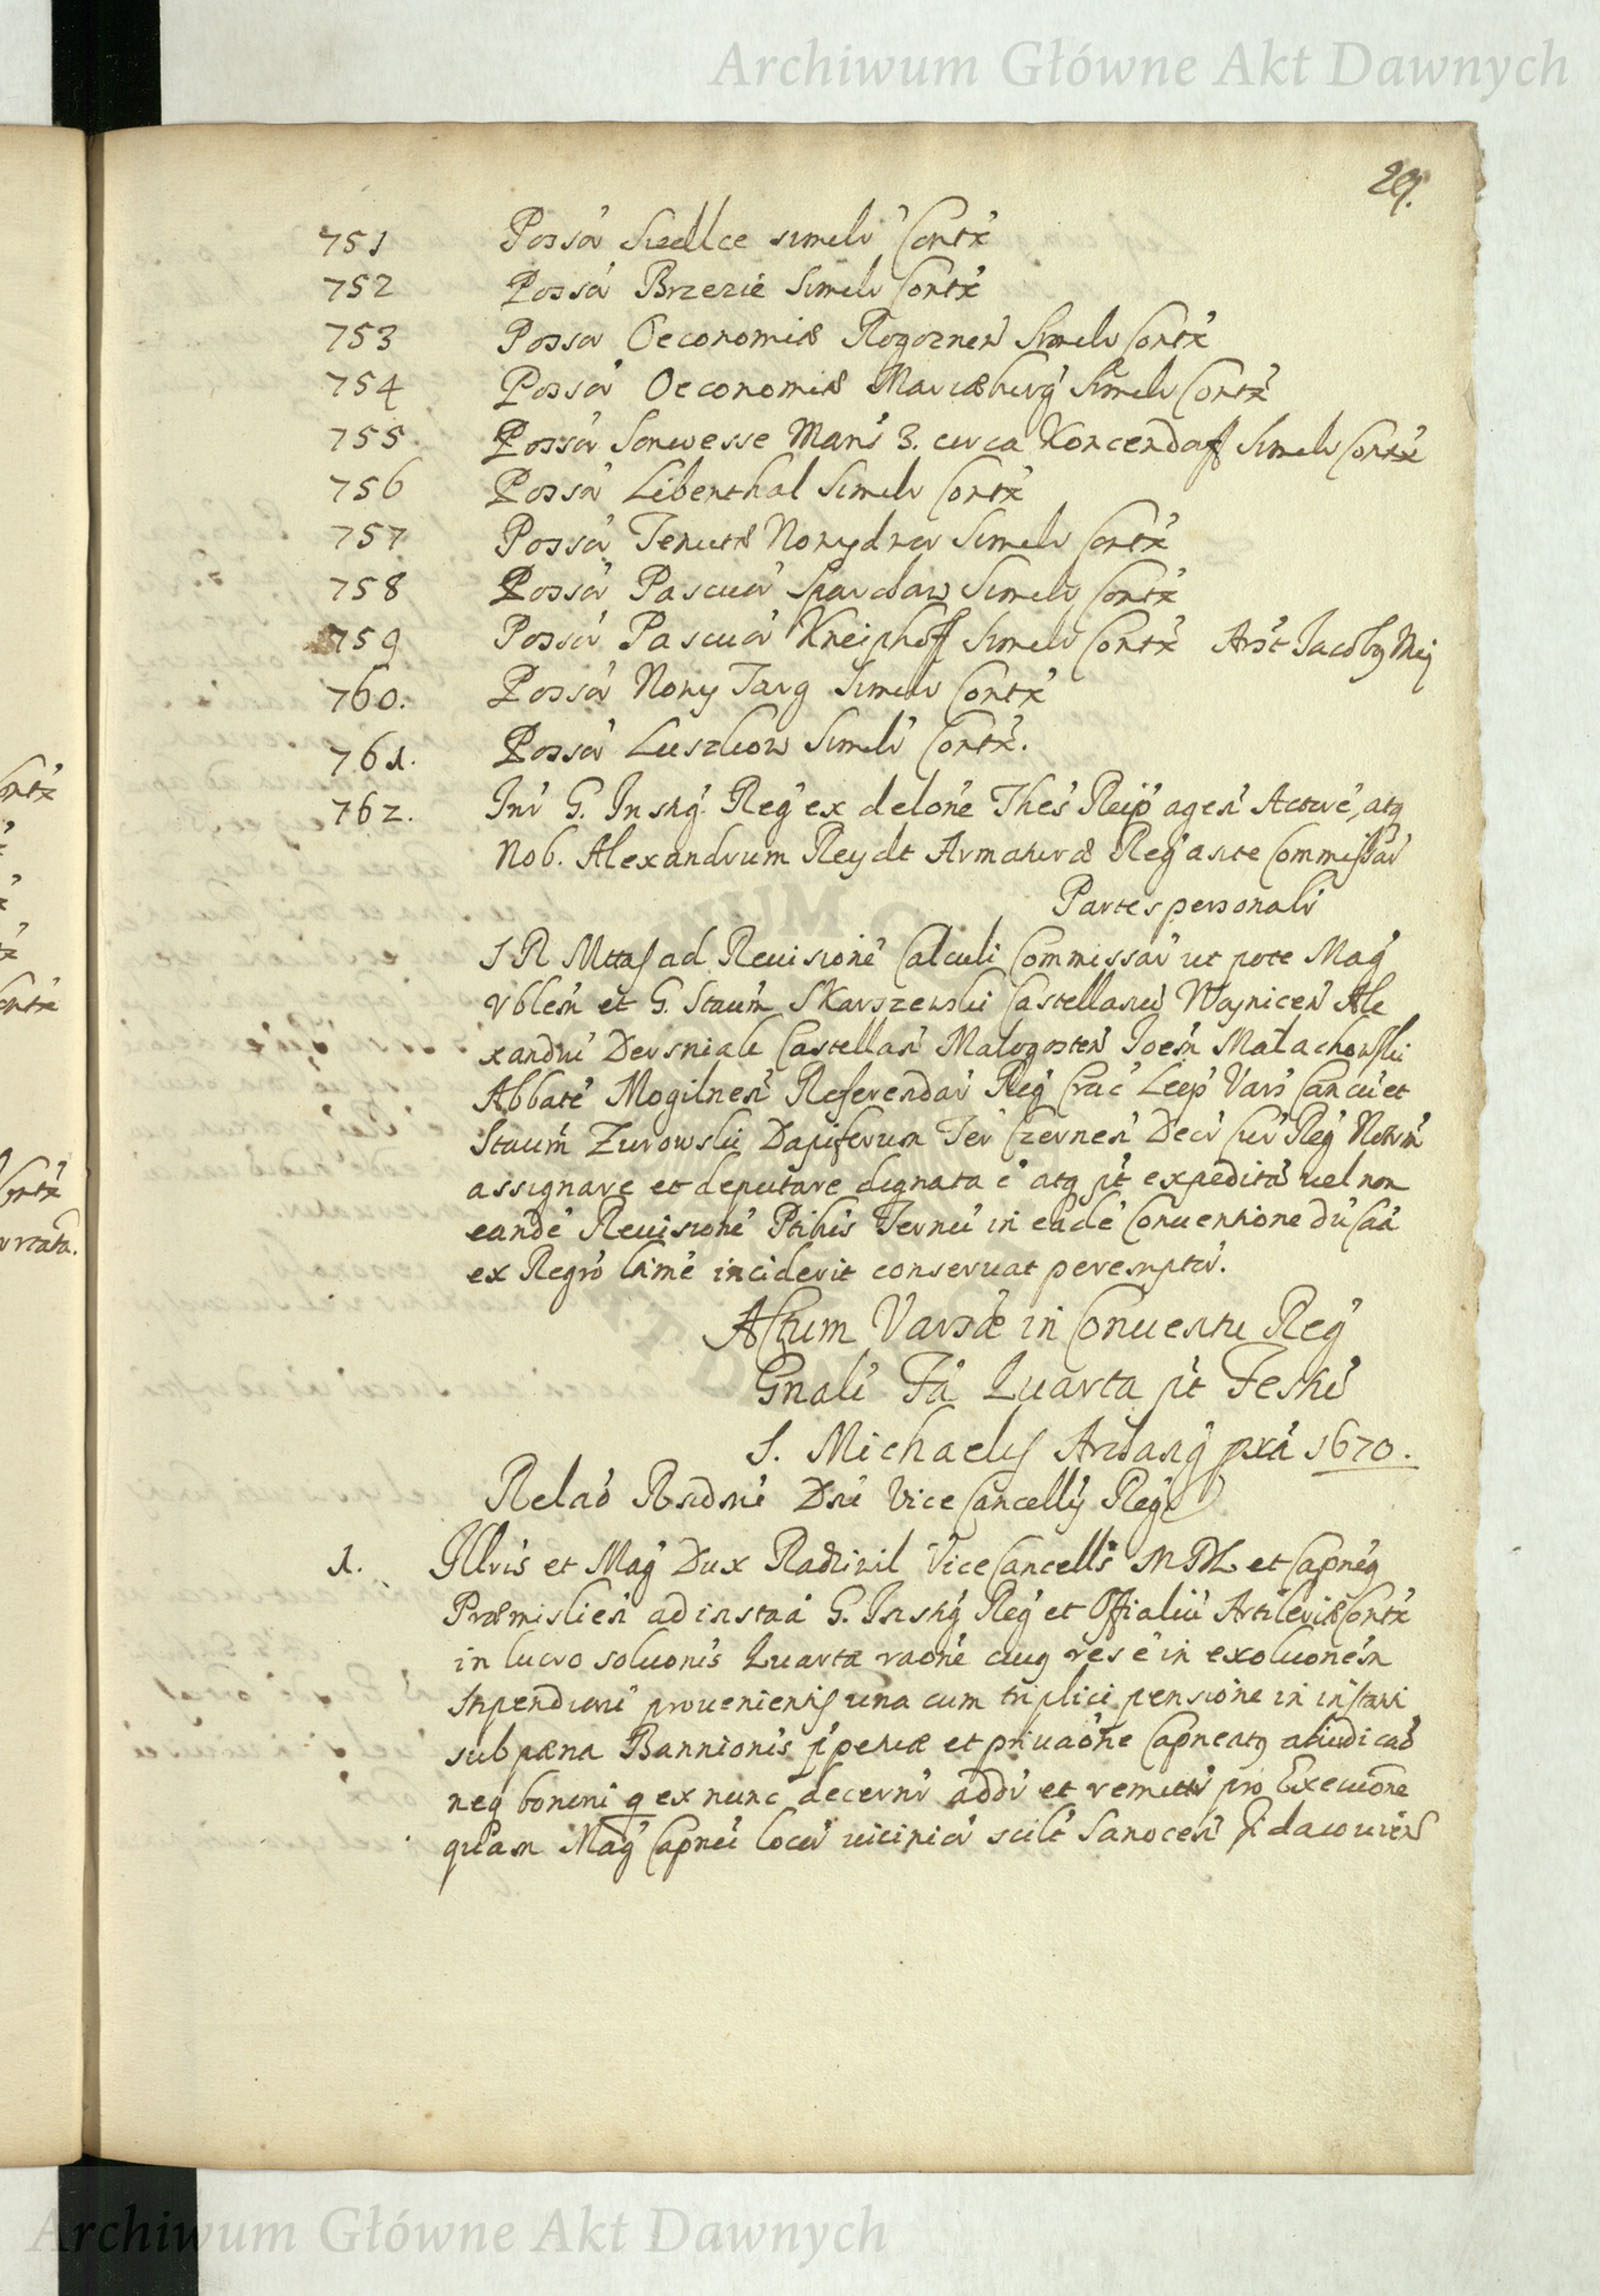 Archiwum Główne Akt Dawnych
29.
751 Possá Siedlce simeli Contx
752 Possá Brzezie Simeli Contx
753 Possa Oeconomiæ Rogoznen Simeli Contx
754 Possá Oeconomiæ Mariæburg Simeli Contx
755. Possá Sonwesse Mans 3. circa Koncendaff Simeli Contx
756 Possá Libenthal Simeli Contx
757 Possá Tenutæ Nowydwor Simeli Contx
758 Possá Pascua Spardaw Simeli Contx
759 Possá Pascuá Kneiphoff Simeli Contx Arst Jacoby Mey
760. Possá Nowy Targ Simeli Contx
761. Possá Luszkow Simeli Contx.
762. Int G. Instig Reg ex delone Thes Reip agen Active, atq
Nob. Alexandrum Reydt Armaturæ Reg arte Commissar
Partes personali
S R Mttas ad Revisione Calculi Commissar ut pote Mag
Vblem et G. Staum Skarszewski Castellanu Woynicen Ale
xandru Dersniak Castellan Malogosten Joem Małachowski
Abbate Mogilnen Referendar Reg Crac Leep Vars Cancu et
Staum Zurowski Dapiferum Ter Czernen Decr Cur Reg Notrm
assignare et deputare dignata e atq pt expedita vel non
eande Revisione Ptibus Ternu in eade Conventione du Caa
ex Regro Cime inciderit conservat peremptu.
Actum Varsæ in Conventu Reg
Gnali Fa Quarta pt Festu
S. Michaelis Archang pxa 1670.
Relao Rndmi Dni Vice Cancellij Regi
1. Illris et Mag Dux Radziwil Vice Cancells M D L et Capneg
Præmislien ad instaa G. Instig Reg et Offialiu Artileriæ Contx
in lucro soluonis Quartæ raone cuug res e in exoluonem
stipendiorū provenientis una cum triplici pensione in instanti
sub pæna Bannionis ppetuæ et privaone Capneatg abiudicao
neq bonoru q ex nunc decerni addi et remitti pro Execuone
quam Mag Capnei locu vicinia scilt Sanocen
Archiwum Główne Akt Dawnych